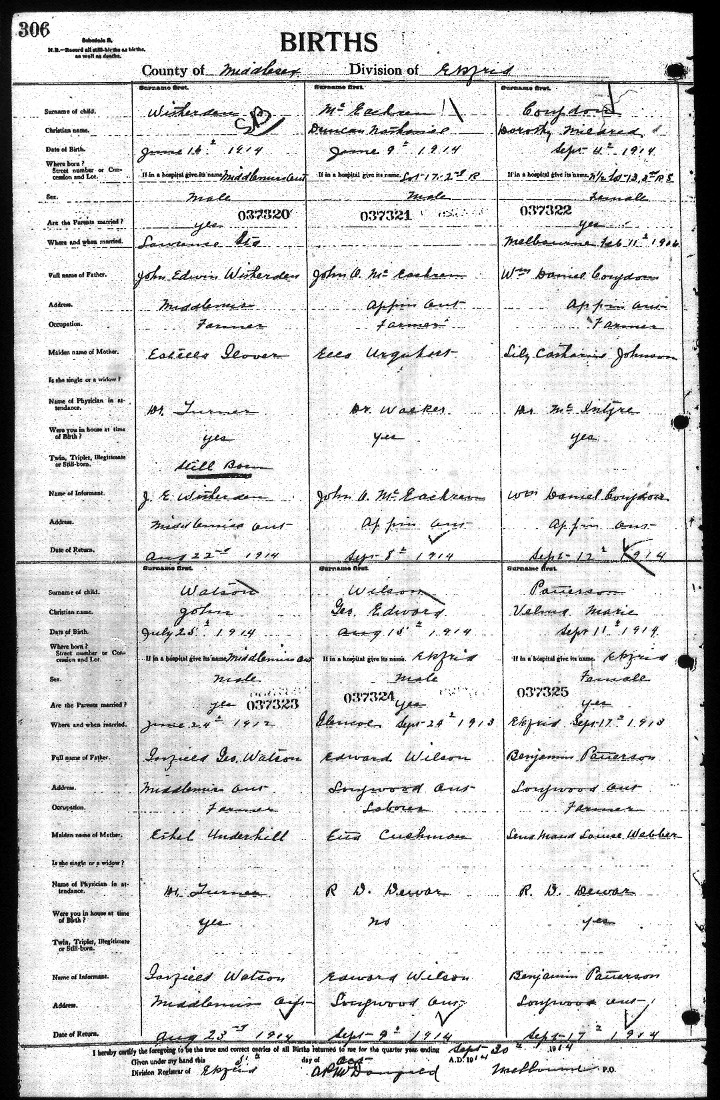 306
Schedule B.
N.B.—Record all still-births as births, as well as deaths.
BIRTHS
County of Middlesex Division of Ekfrid
Surname first. Surname first. Surname first.
Surname of child. Witherden McEachren Congdon
Christian name. Duncan Nathaniel Dorothy Mildred
Date of Birth. June 16th 1914 June 9th 1914 Sept 4th 1914
Where born?
Street number or Concession and Lot. If in a hospital give its name. Middlemiss Ont If in a hospital give its name. Lot 17. 2nd R If in a hospital give its name. N/2 Lot 13, 2nd R S
Sex. Male Male Female
037320 037321 037322
Are the Parents married? yes yes
Where and when married. Lawrence Sta Melbourne Feb 11th
Full name of Father. John Edwin Witherden John A. McEachren Wm Daniel Congdon
Address. Middlemiss Appin Ont Appin Ont
Occupation. Farmer Farmer Farmer
Maiden name of Mother. Estella Glover Urquhart Lily Catharine Johnson
Is she single or a widow?
Name of Physician in attendance. Dr. Turner Dr. Walker Dr McIntyre
Were you in house at time of Birth? yes yes yes
Twin, Triplet, Illegitimate or Still-born. Still Born
Name of Informant. J. E. Witherden John A. McEachren Wm Daniel Congdon
Address. Middlemiss Ont Appin Ont Appin Ont
Date of Return. Aug 22nd 1914 Sept 8th 1914 Sept 12th 1914
Surname first. Surname first. Surname first.
Surname of child. Watson Wilson Patterson
Christian name. John Geo. Edward Velma Marie
Date of Birth. July 25th 1914 Aug 15th 1914 Sept 11th 1914
Where born?
Street number or Concession and Lot. If in a hospital give its name. Middlemiss Ont If in a hospital give its name. Ekfrid If in a hospital give its name. Ekfrid
Sex. Male Male Female
Are the Parents married? yes 037323 037324 yes 037325 yes
Where and when married. June 24th 1912 Glencoe Sept 24th 1913 Ekfrid Sept 17th 1913
Full name of Father. Garfield Geo. Watson Edward Wilson Benjamin Patterson
Address. Middlemiss Ont Longwood Ont Longwood Ont
Occupation. Farmer Laborer Farmer
Maiden name of Mother. Ethel Underhill Cushman Lena Maud Louise Webber
Is she single or a widow?
Name of Physician in attendance. Dr. Turner R. D. Dewar R. D. Dewar
Were you in house at time of Birth? yes no yes
Twin, Triplet, Illegitimate or Still-born.
Name of Informant. Garfield Watson Edward Wilson Benjamin Patterson
Address. Middlemiss Longwood Ont Longwood Ont
Date of Return. Aug 23rd 1914 Sept 9th 1914 Sept 17th 1914
I hereby certify the foregoing to be the true and correct entries of all Births returned to me for the quarter year ending Sept 30th 1914
Given under my hand this day of Oct A.D. 1914
Division Registrar of Ekfrid Melbourne P.O.